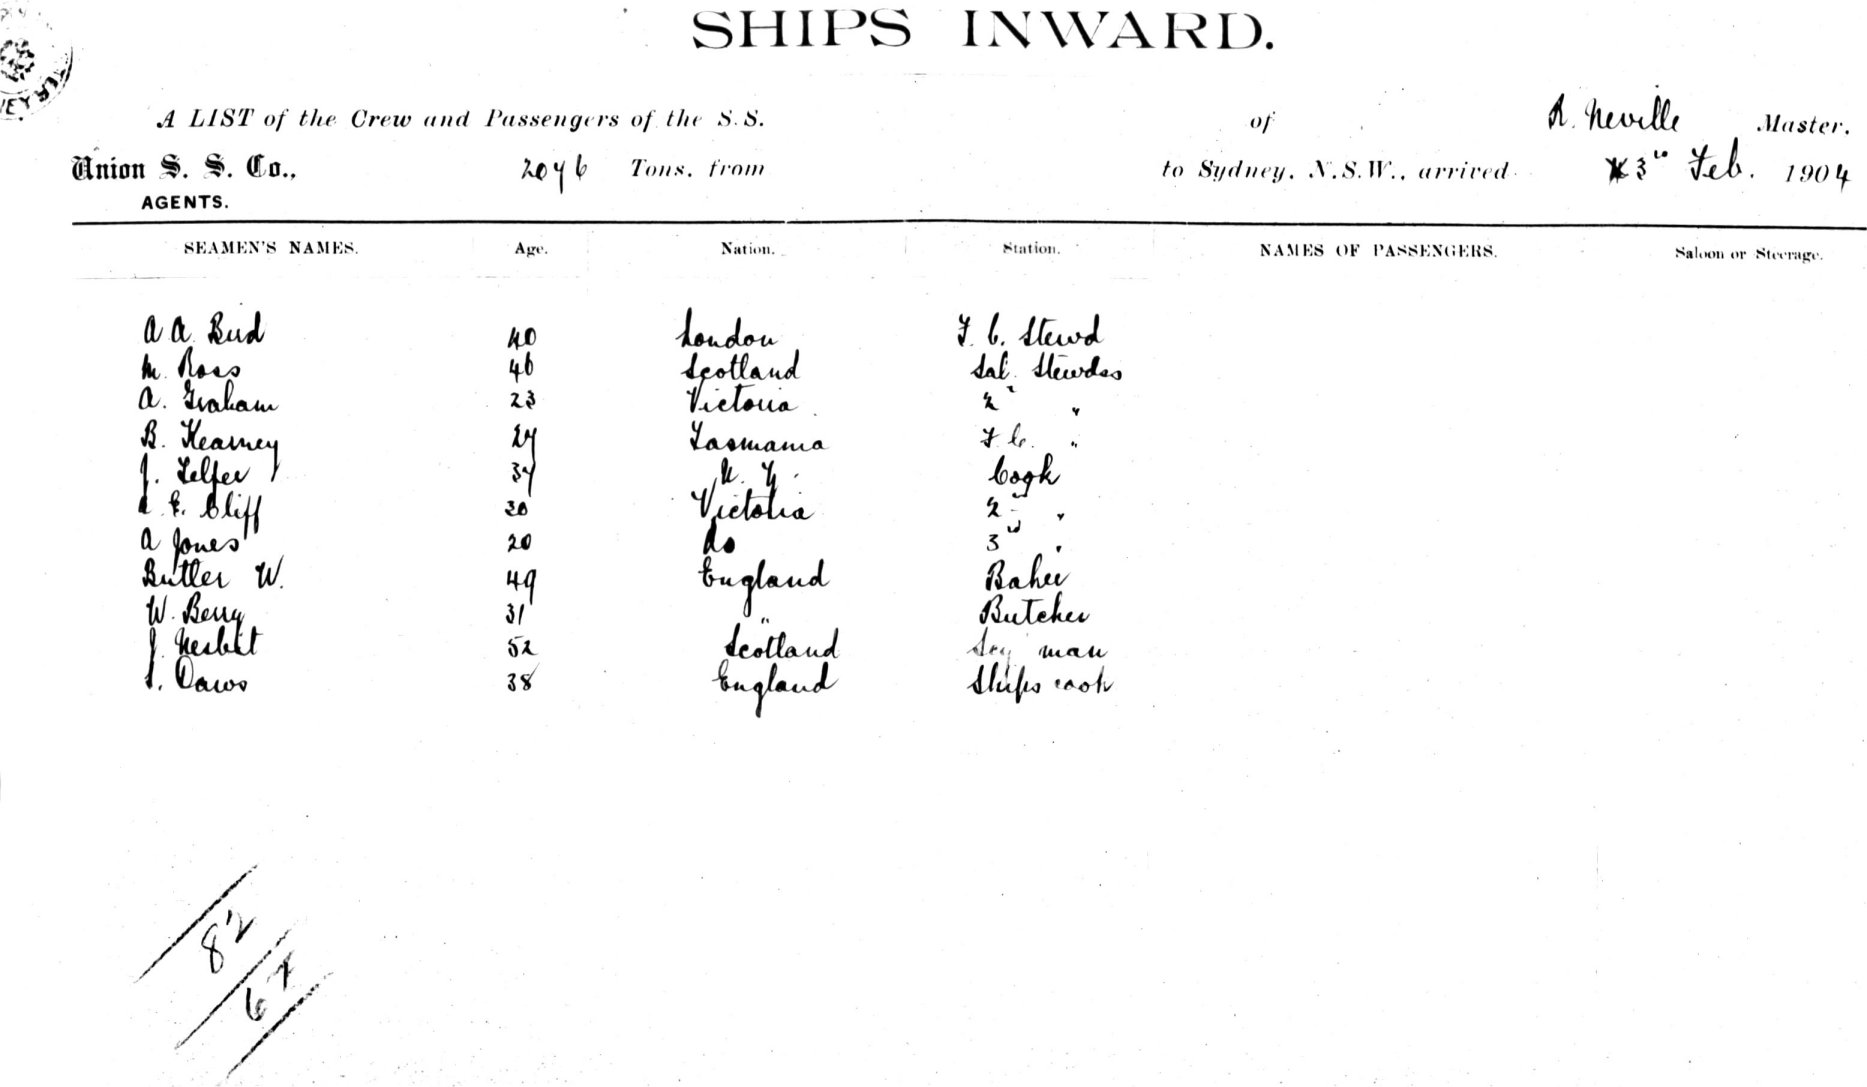 SHIPS INWARD.
A LIST of the Crew and Passengers of the S.S. of R. Neville Master.
Union S. S. Co., 2076 Tons, from to Sydney, N.S.W., arrived 3rd Feb. 1904
AGENTS.
SEAMEN'S NAMES. Age. Nation. Station. NAMES OF PASSENGERS. Saloon or Steerage.
A A Bird 40 London F. C. Stewd
M. Ross 46 Scotland Sal. Stewdss
A. Graham 23 Victoria 2 "
B. Kearney 27 Tasmania F. C. "
J. Telfer 37 N. Z. Cook
E. Cliff 30 Victoria 2nd "
A Jones 20 do 3rd "
Butler W. 49 England Baker
W. Berry 31 " Butcher
J. Nesbit 52 Scotland man
Daws 38 England Ships cook
82
67